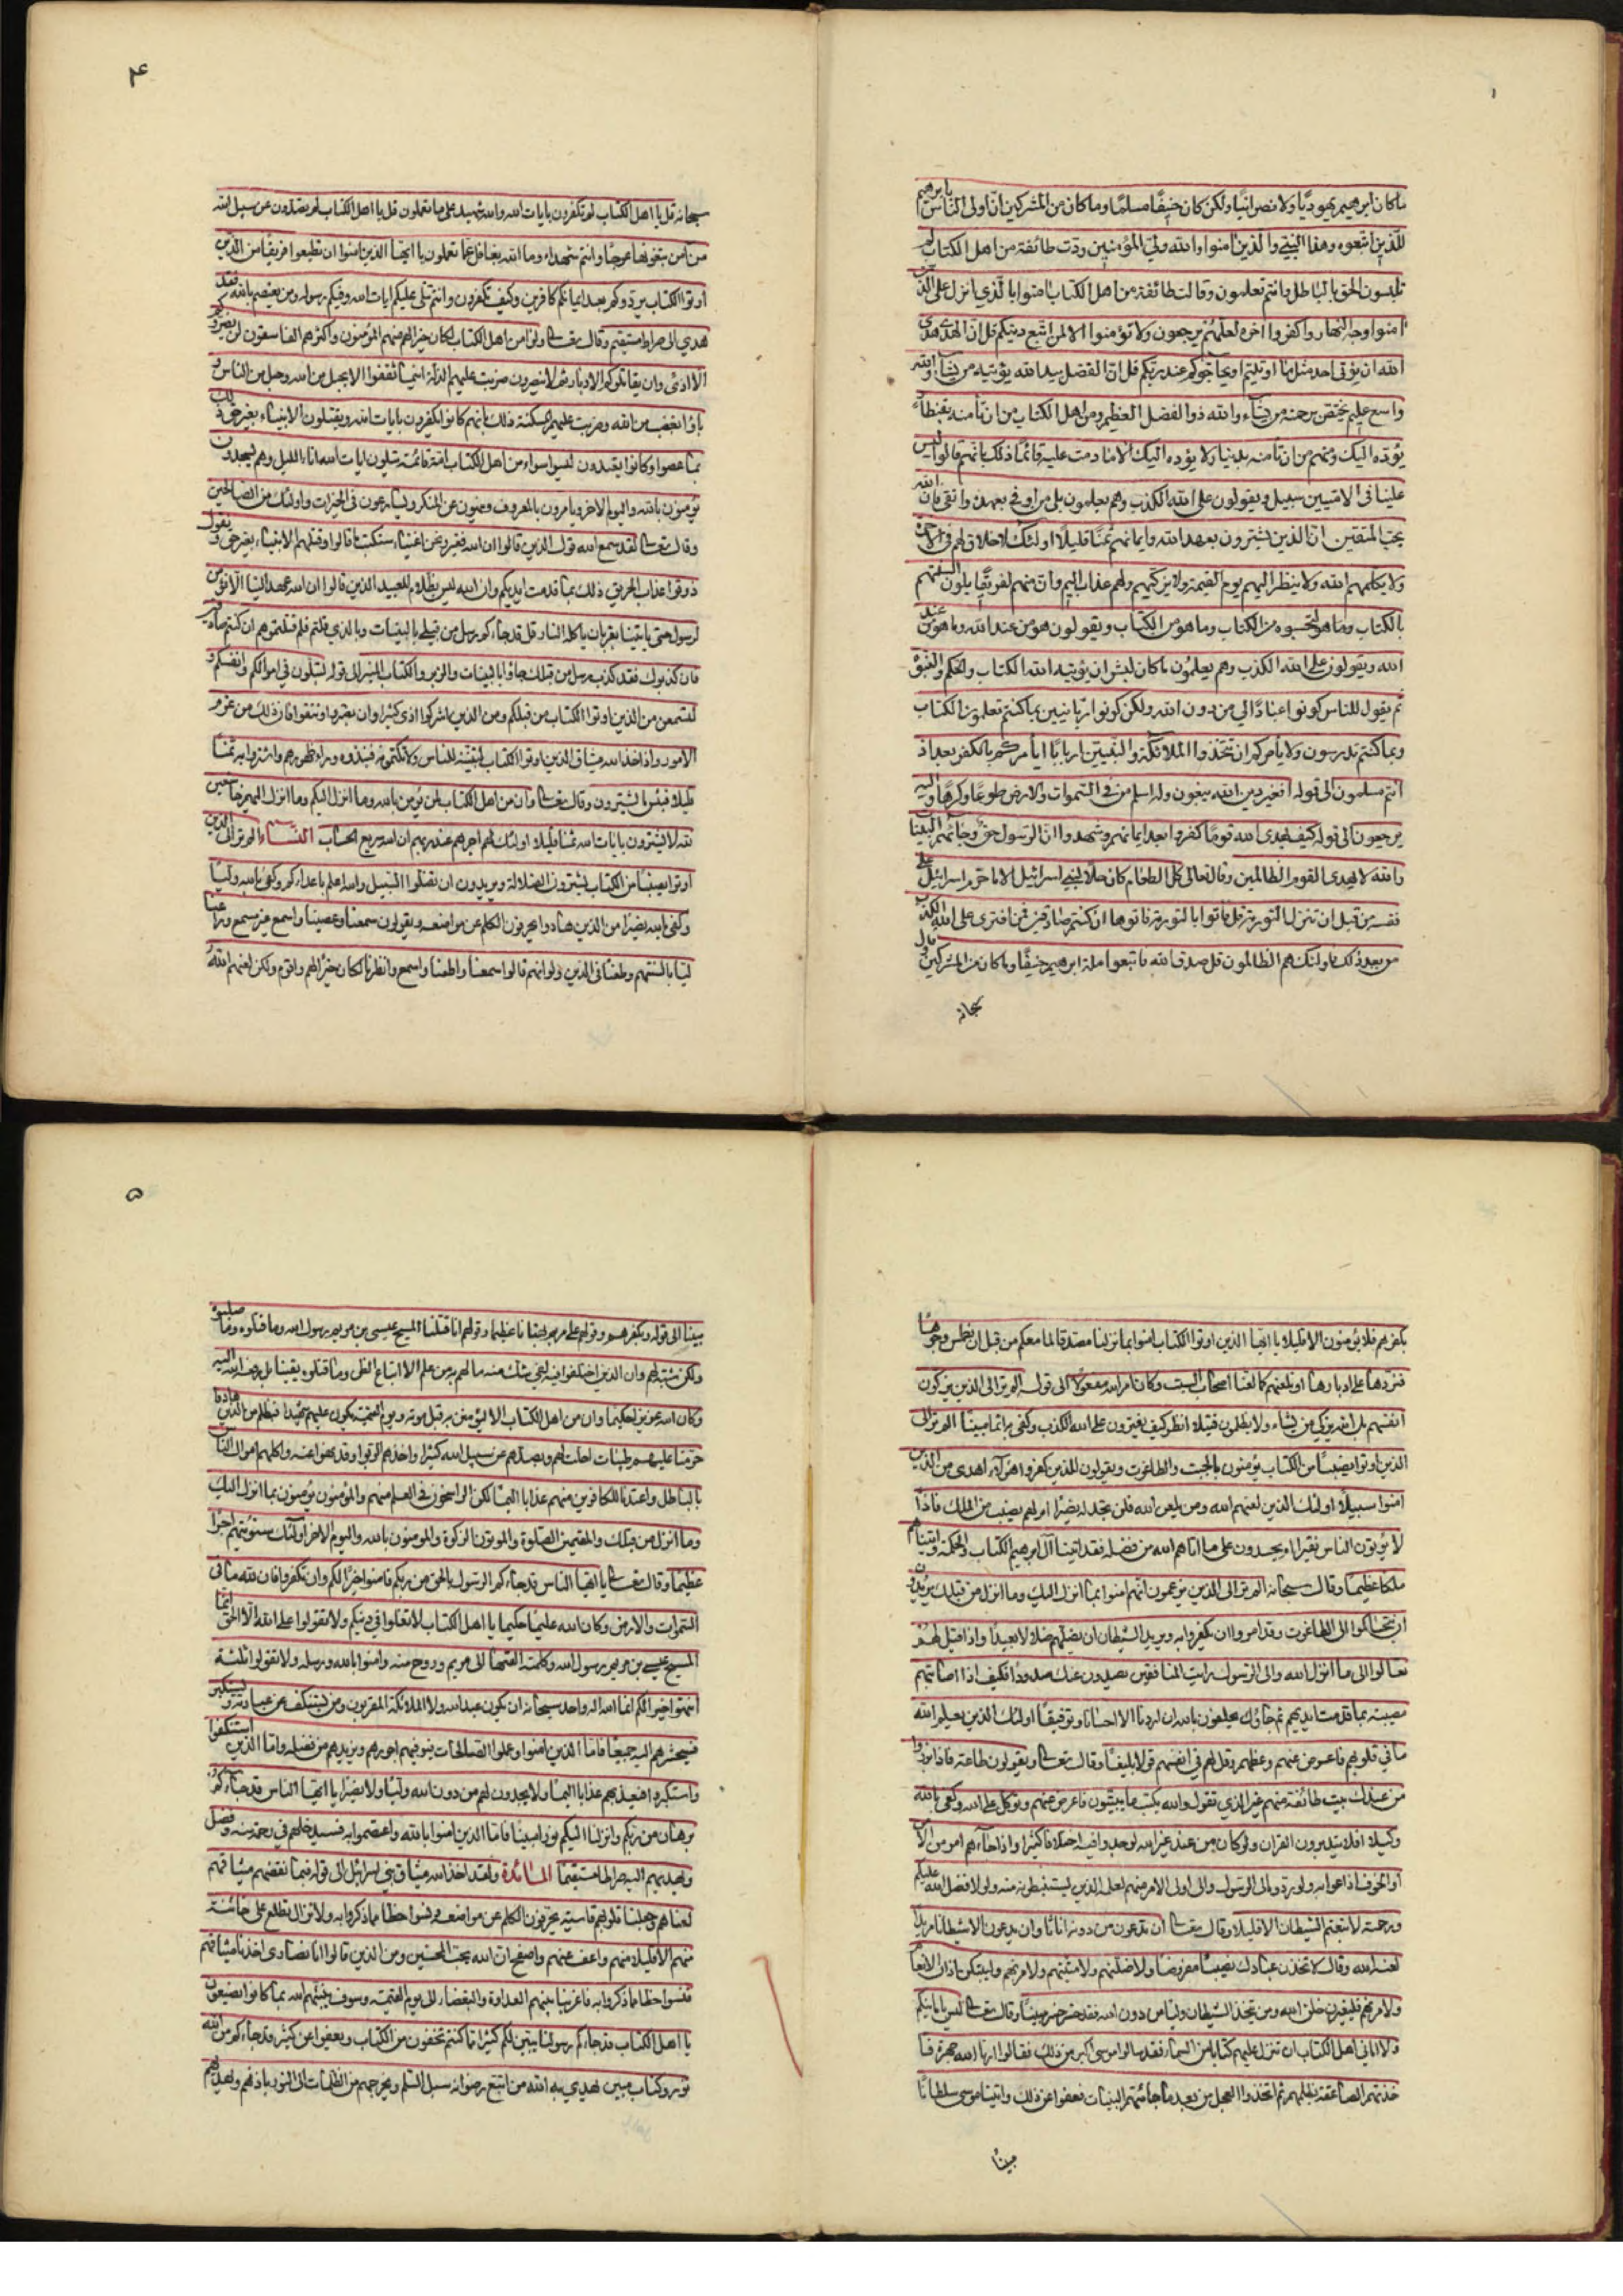 ما كان ابرهيم يهوديًّا ولا نصرانيًا ولكن كان حنيفًا مسلمًا وما كان من المشركين انّ اولى الناس بابرهيم
للّذين اتبعوه وهذا النبيّ والّذين امنوا والله وليّ المؤمنين ودّت طائفة من اهل الكتاب لو
تلبسون الحق بالباطل وانتم تعلمون وقالت طائفة من اهل الكتاب امنوا بالّذي انزل على الّذين
امنوا وجه النهار واكفروا اخره لعلّهم يرجعون ولا تؤمنوا الا لمن اتبع دينكم قل انّ الهدى هدى
الله ان يؤتى احد مثل ما اوتيتم او يحاجّوكم عند ربّكم قل انّ الفضل بيد الله يؤتيه من يشاء والله
واسع عليم يختصّ برحمته من يشاء والله ذو الفضل العظيم ومن اهل الكتاب من ان تأمنه بقنطار
يؤدّه اليك ومنهم من ان تأمنه بدينار لا يؤدّه اليك الّا ما دمت عليه قائمًا ذلك بانّهم قالوا ليس
علينا في الاميين سبيل ويقولون على الله الكذب وهم يعلمون بلى من اوفى بعهده واتقى فانّ الله
يحبّ المتقين انّ الذين يشترون بعهد الله وايمانهم ثمنًا قليلًا اولئك لا خلاق لهم في الاخرة
ولا يكلّمهم الله ولا ينظر اليهم يوم القيمة ولا يزكّيهم ولهم عذاب اليم وانّ منهم لفريقًا يلون السنتهم
بالكتاب لتحسبوه من الكتاب وما هو من الكتاب ويقولون هو من عند الله وما هو من عند
الله ويقولون على الله الكذب وهم يعلمون ما كان لبشر ان يؤتيه الله الكتاب والحكم والنبوّة
ثم يقول للناس كونوا عبادًا لي من دون الله ولكن كونوا ربّانيين بما كنتم تعلمون الكتاب
وبما كنتم تدرسون ولا يأمركم ان تتخذوا الملائكة والنبيّين اربابًا أيأمركم بالكفر بعد اذ
انتم مسلمون الى قوله افغير دين الله يبغون وله اسلم من في السموات والارض طوعًا وكرهًا واليه
يرجعون الى قوله كيف يهدي الله قومًا كفروا بعد ايمانهم وشهدوا انّ الرسول حقّ وجائهم البينات
والله لا يهدي القوم الظالمين وقال تعالى كلّ الطعام كان حلًا لبني اسرائيل الا ما حرّم اسرائيل على
نفسه من قبل ان تنزل التورية قل فأتوا بالتورية فاتلوها ان كنتم صادقين فمن افترى على الله الكذب
من بعد ذلك فاولئك هم الظالمون قل صدق الله فاتبعوا ملة ابرهيم حنيفًا وما كان من المشركين قال
سبحانه
۴
سبحانه قل يا اهل الكتاب لم تكفرون بايات الله والله شهيد على ما تعملون قل يا اهل الكتاب لم تصدّون عن سبيل الله
من آمن تبغونها عوجًا وانتم شهداء وما الله بغافل عمّا تعملون يا ايّها الذين امنوا ان تطيعوا فريقًا من الذين
اوتوا الكتاب يردّوكم بعد ايمانكم كافرين وكيف تكفرون وانتم تتلى عليكم ايات الله وفيكم رسوله ومن يعتصم بالله فقد
هدي الى صراط مستقيم وقال تعالى ولو امن اهل الكتاب لكان خيرًا لهم منهم المؤمنون واكثرهم الفاسقون لن يضرّوكم
الا اذى وان يقاتلوكم يولوكم الادبار ثم لا ينصرون ضربت عليهم الذلة اينما ثقفوا الا بحبل من الله وحبل من الناس و
باؤا بغضب من الله وضربت عليهم المسكنة ذلك بانهم كانوا يكفرون بايات الله ويقتلون الانبياء بغير حق ذلك
بما عصوا وكانوا يعتدون ليسوا سواء من اهل الكتاب امة قائمة يتلون ايات الله اناء الليل وهم يسجدون
يؤمنون بالله واليوم الاخر ويأمرون بالمعروف وينهون عن المنكر ويسارعون في الخيرات واولئك من الصالحين
وقال تعالى لقد سمع الله قول الذين قالوا ان الله فقير ونحن اغنياء سنكتب ما قالوا وقتلهم الانبياء بغير حق ونقول
ذوقوا عذاب الحريق ذلك بما قدمت ايديكم وان الله ليس بظلام للعبيد الذين قالوا ان الله عهد الينا الّا نؤمن
لرسول حتى يأتينا بقربان تأكله النار قل قد جاءكم رسل من قبلي بالبينات وبالذي قلتم فلم قتلتموهم ان كنتم صادقين
فان كذبوك فقد كذب رسل من قبلك جاؤا بالبينات والزبر والكتاب المنير الى قوله لتبلون في اموالكم وانفسكم و
لتسمعن من الذين اوتوا الكتاب من قبلكم ومن الذين اشركوا اذى كثيرا وان تصبروا وتتقوا فان ذلك من عزم
الامور واذ اخذ الله ميثاق الذين اوتوا الكتاب لتبيننه للناس ولا تكتمونه فنبذوه وراء ظهورهم واشتروا به ثمنًا
قليلا فبئس ما يشترون وقال تعالى وان من اهل الكتاب لمن يؤمن بالله وما انزل اليكم وما انزل اليهم خاشعين
لله لا يشترون بايات الله ثمنا قليلا اولئك لهم اجرهم عند ربهم ان الله سريع الحساب النساء الم تر الى الذين
اوتوا نصيبًا من الكتاب يشترون الضلالة ويريدون ان تضلوا السبيل والله اعلم باعدائكم وكفى بالله وليًا
وكفى بالله نصيرا من الذين هادوا يحرفون الكلم عن مواضعه ويقولون سمعنا وعصينا واسمع غير مسمع وراعنا
ليًا بالسنتهم وطعنا في الدين ولو انهم قالوا سمعنا واطعنا واسمع وانظرنا لكان خيرًا لهم واقوم ولكن لعنهم الله
بكفرهم فلا يؤمنون الا قليلا يا ايّها الذين اوتوا الكتاب امنوا بما نزلنا مصدقا لما معكم من قبل ان نطمس وجوهًا
فنردّها على ادبارها او نلعنهم كما لعنّا اصحاب السبت وكان امر الله مفعولا الى قوله الم تر الى الذين يزكون
انفسهم بل الله يزكي من يشاء ولا يظلمون فتيلا انظر كيف يفترون على الله الكذب وكفى به اثما مبينًا الم تر الى
الذين اوتوا نصيبًا من الكتاب يؤمنون بالجبت والطاغوت ويقولون للذين كفروا هؤلاء اهدى من الذين
امنوا سبيلًا اولئك الذين لعنهم الله ومن يلعن الله فلن تجد له نصيرًا ام لهم نصيب من الملك فاذًا
لا يؤتون الناس نقيرا ام يحسدون على ما اتاهم الله من فضله فقد اتينا آل ابرهيم الكتاب والحكمة واتيناهم
ملكا عظيما وقال سبحانه الم تر الى الذين يزعمون انهم امنوا بما انزل اليك وما انزل من قبلك يريدون
ان يتحاكموا الى الطاغوت وقد امروا ان يكفروا به ويريد الشيطان ان يضلهم ضلالا بعيدًا واذا قيل لهم
تعالوا الى ما انزل الله والى الرسول رايت المنافقين يصدون عنك صدودًا فكيف اذا اصابتهم
مصيبة بما قدمت ايديهم ثم جاؤك يحلفون بالله ان اردنا الا احسانا وتوفيقًا اولئك الذين يعلم الله
ما في قلوبهم فاعرض عنهم وعظهم وقل لهم في انفسهم قولا بليغًا وقال تعالى ويقولون طاعة فاذا برزوا
من عندك بيت طائفة منهم غير الذي تقول والله يكتب ما يبيتون فاعرض عنهم وتوكل على الله وكفى بالله
وكيلا افلا يتدبرون القران ولو كان من عند غير الله لوجدوا فيه اختلافا كثيرا واذا جاءهم امر من الامن
او الخوف اذاعوا به ولو ردوه الى الرسول والى اولى الامر منهم لعلمه الذين يستنبطونه منه ولولا فضل الله عليكم
ورحمته لاتبعتم الشيطان الا قليلا وقال تعالى ان يدعون من دونه اناثًا وان يدعون الا شيطانا مريدًا
لعنه الله وقال لاتخذن من عبادك نصيبًا مفروضا ولاضلنّهم ولامنينّهم ولامرنهم وليبتكن اذان الانعام
ولامرنهم فليغيرن خلق الله ومن يتخذ الشيطان وليا من دون الله فقد خسر خسرانا مبينًا وقال تعالى ليس بامانيكم
ولا اماني اهل الكتاب ان تنزل عليهم كتابا من السماء فقد سالوا موسى اكبر من ذلك فقالوا ارنا الله جهرة فا
خذتهم الصاعقة بظلمهم ثم اتخذوا العجل من بعد ما جائتهم البينات فعفونا عن ذلك واتينا موسى سلطانًا
مبينًا
۵
مبينا الى قوله وبكفرهم وقولهم على مريم بهتانا عظيما وقولهم انا قتلنا المسيح عيسى بن مريم رسول الله وما قتلوه وما صلبوه
ولكن شبّه لهم وان الذين اختلفوا فيه لفي شك منه ما لهم به من علم الا اتباع الظن وما قتلوه يقينا بل رفعه الله اليه
وكان الله عزيزا حكيما وان من اهل الكتاب الا ليؤمنن به قبل موته ويوم القيمة يكون عليهم شهيدا فبظلم من الذين هادوا
حرّمنا عليهم طيبات احلت لهم وبصدهم عن سبيل الله كثيرا واخذهم الربوا وقد نهوا عنه واكلهم اموال الناس
بالباطل واعتدنا للكافرين منهم عذابا اليمًا لكن الراسخون في العلم منهم والمؤمنون يؤمنون بما انزل اليك
وما انزل من قبلك والمقيمين الصلوة والمؤتون الزكوة والمؤمنون بالله واليوم الاخر اولئك سنؤتيهم اجرًا
عظيمًا وقال تعالى يا ايّها الناس قد جاءكم الرسول بالحق من ربكم فامنوا خيرًا لكم وان تكفروا فان لله ما في
السموات والارض وكان الله عليمًا حكيما يا اهل الكتاب لا تغلوا في دينكم ولا تقولوا على الله الّا الحق انّما
المسيح عيسى بن مريم رسول الله وكلمته القيها الى مريم وروح منه وامنوا بالله ورسله ولا تقولوا ثلثة
انتهوا خيرا لكم انما الله اله واحد سبحانه ان يكون عبد الله ولا الملائكة المقربون ومن يستنكف عن عبادته ويستكبر
فسيحشرهم اليه جميعًا فامّا الذين امنوا وعملوا الصالحات فيوفيهم اجورهم ويزيدهم من فضله وامّا الذين استنكفوا
واستكبروا فيعذبهم عذابا اليمًا ولا يجدون لهم من دون الله وليًا ولا نصيرًا يا ايّها الناس قد جاءكم
برهان من ربكم وانزلنا اليكم نورا مبينًا فامّا الذين امنوا بالله واعتصموا به فسيدخلهم في رحمة منه وفضل
ويهديهم اليه صراطا مستقيمًا المائدة ولقد اخذ الله ميثاق بني اسرائيل الى قوله فبما نقضهم ميثاقهم
لعنّاهم وجعلنا قلوبهم قاسية يحرفون الكلم عن مواضعه ونسوا حظا مما ذكروا به ولا تزال تطلع على خائنة
منهم الا قليلا منهم واعف عنهم واصفح ان الله يحبّ المحسنين ومن الذين قالوا انا نصارى اخذنا ميثاقهم
فنسوا حظا مما ذكروا به فاغرينا بينهم العداوة والبغضاء الى يوم القيمة وسوف ينبّئهم الله بما كانوا يصنعون
يا اهل الكتاب قد جاءكم رسولنا يبيّن لكم كثيرًا مما كنتم تخفون من الكتاب ويعفوا عن كثير قد جاءكم من الله
نور وكتاب مبين يهدي به الله من اتبع رضوانه سبل السلم ويخرجهم من الظلمات الى النور باذنه ويهديهم